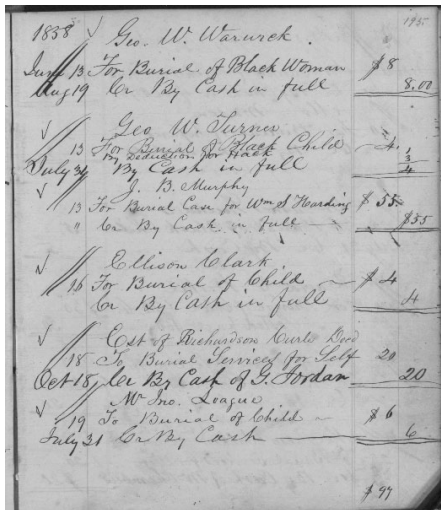 1858 Geo. W. Warwick. 195
June 13 For Burial of Black Woman $8
Aug 19 Cr By Cash in full 8.00
Geo W. Turner
13 For Burial of Black Child 4.
By Deduction for Hack 1
3
July 31 By Cash in full 4
J. B. Murphy
13 For Burial Case for Wm S Harding $55
" Cr By Cash in full $55
Ellison Clark
16 For Burial of Child $4
Cr By Cash in full 4
Est of Richardson Curle Decd
18 To Burial Services for Self 20
Oct 18 Cr By Cash of G. Jordan 20
Mr Jno. Loague
19 To Burial of Child $6
July 31 Cr By Cash 6
$97